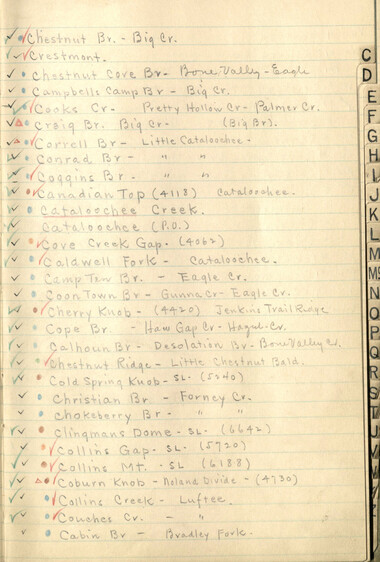 Chestnut Br. - Big Cr.
Crestmont.
Chestnut Cove Br - Bone Valley - Eagle
Campbells Camp Br - Big Cr.
Cooks Cr - Pretty Hollow Cr - Palmer Cr.
Craig Br. Big Cr - (Big Br).
Correll Br - Little Cataloochee -
Conrad Br - " "
Coggins Br - " "
Canadian Top (4118) Cataloochee.
Cataloochee Creek.
Cataloochee (P.O.)
Cove Creek Gap. (4062)
Caldwell Fork - Cataloochee.
Camp Ten Br. - Eagle Cr.
Coon Town Br - Gunna Cr - Eagle Cr.
Cherry Knob - (4420) Jenkins Trail Ridge
Cope Br. - Haw Gap Cr - Hazel Cr.
Calhoun Br - Desolation Br - Bone Valley Cr.
Chestnut Ridge - Little Chestnut Bald.
Cold Spring Knob - SL. (5240)
Christian Br - Forney Cr.
Chokeberry Br - " "
Clingmans Dome - SL. (6642)
Collins Gap. SL (5720)
Collins Mt. - SL (6188)
Coburn Knob - Noland Divide - (4730)
Collins Creek - Luftee
Couches Cr. - "
Cabin Br - Bradley Fork.
C
D
E
F
G
H
I
J
K
L
M
Mc
N
O
P
Q
R
S
T
U
V
W